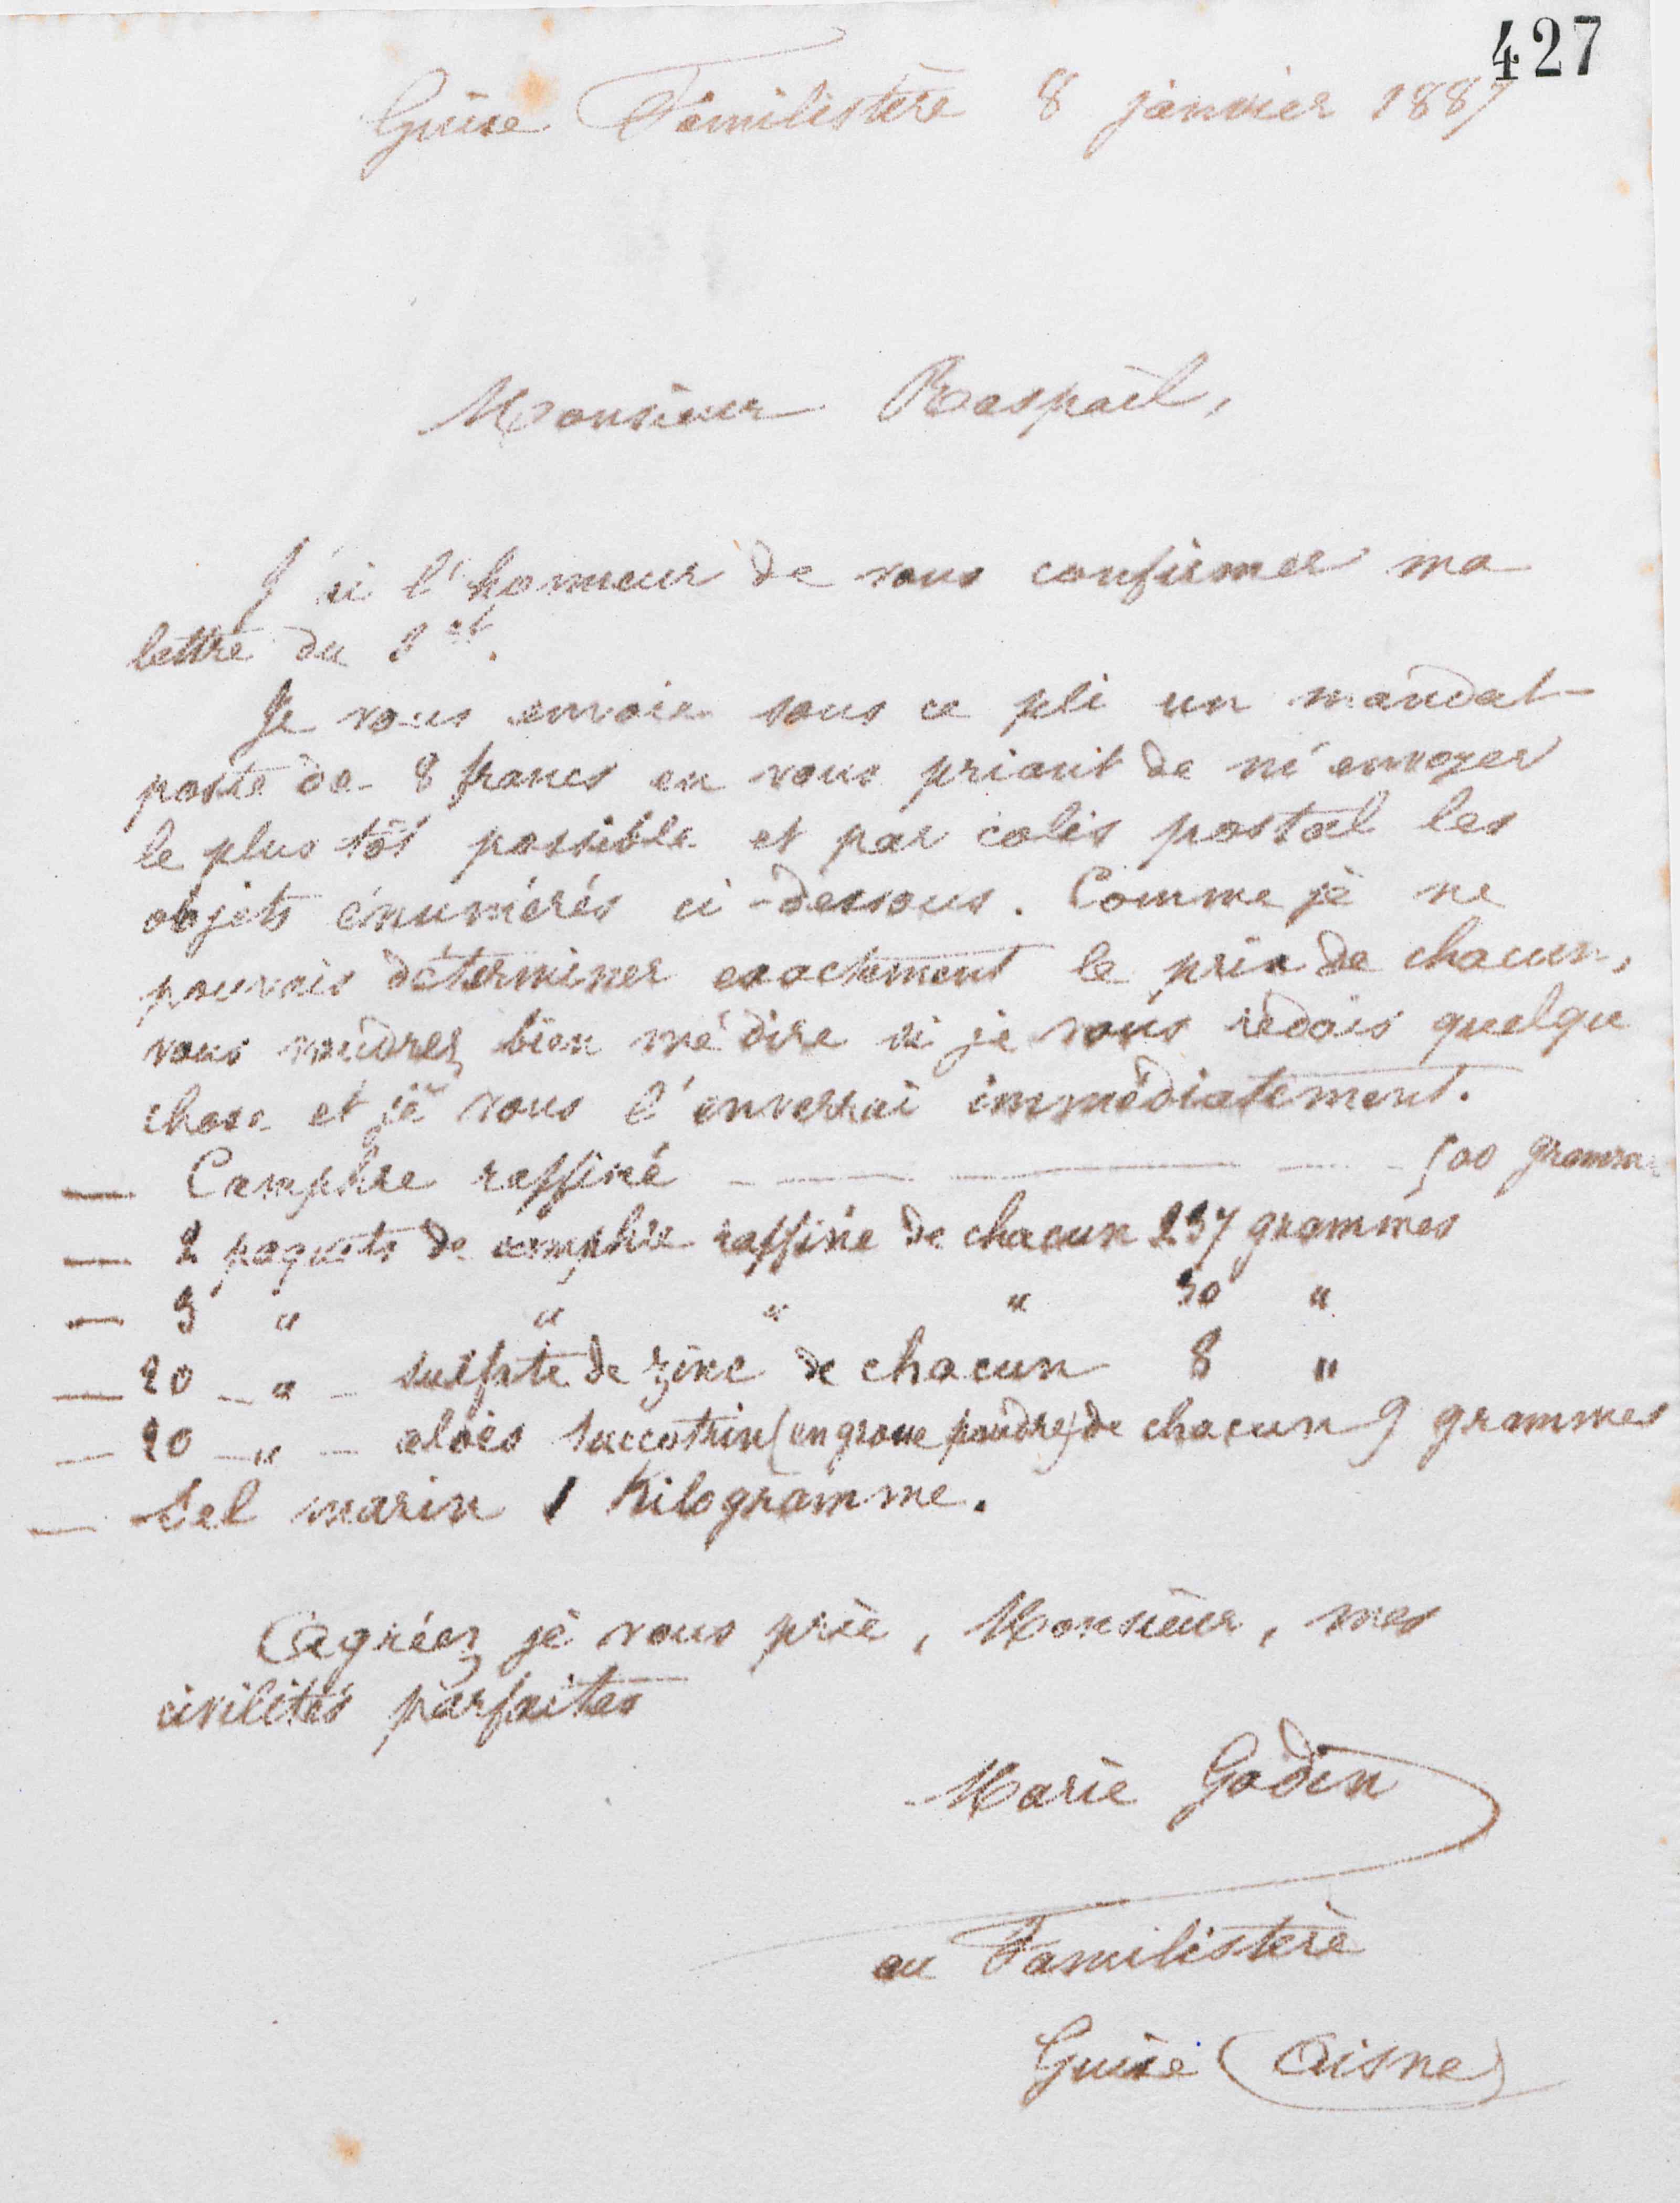 427
Guise Familistère 8 janvier 1887
Monsieur Raspail,
J'ai l'honneur de vous confirmer ma
lettre du
Je vous envoie sous ce pli un mandat-
poste de 8 francs en vous priant de m'envoyer
le plus tôt possible et par colis postal les
objets énumérés ci-dessous. Comme je ne
pouvais déterminer exactement le prix de chacun,
vous voudrez bien me dire si je vous redois quelque
chose et je vous l'enverrai immédiatement.
— Camphre raffiné — 500 grammes
— 2 paquets de camphre raffiné de chacun 237 grammes
— 3 " " " " 30 "
— 20 — " — sulfate de zinc de chacun 8 "
— 20 — " — aloès succotrin (en grosse poudre) de chacun 9 grammes
— Sel marin 1 Kilogramme.
Agréez je vous prie, Monsieur, mes
civilités parfaites
Marie Godin
au Familistère
Guise (Aisne)